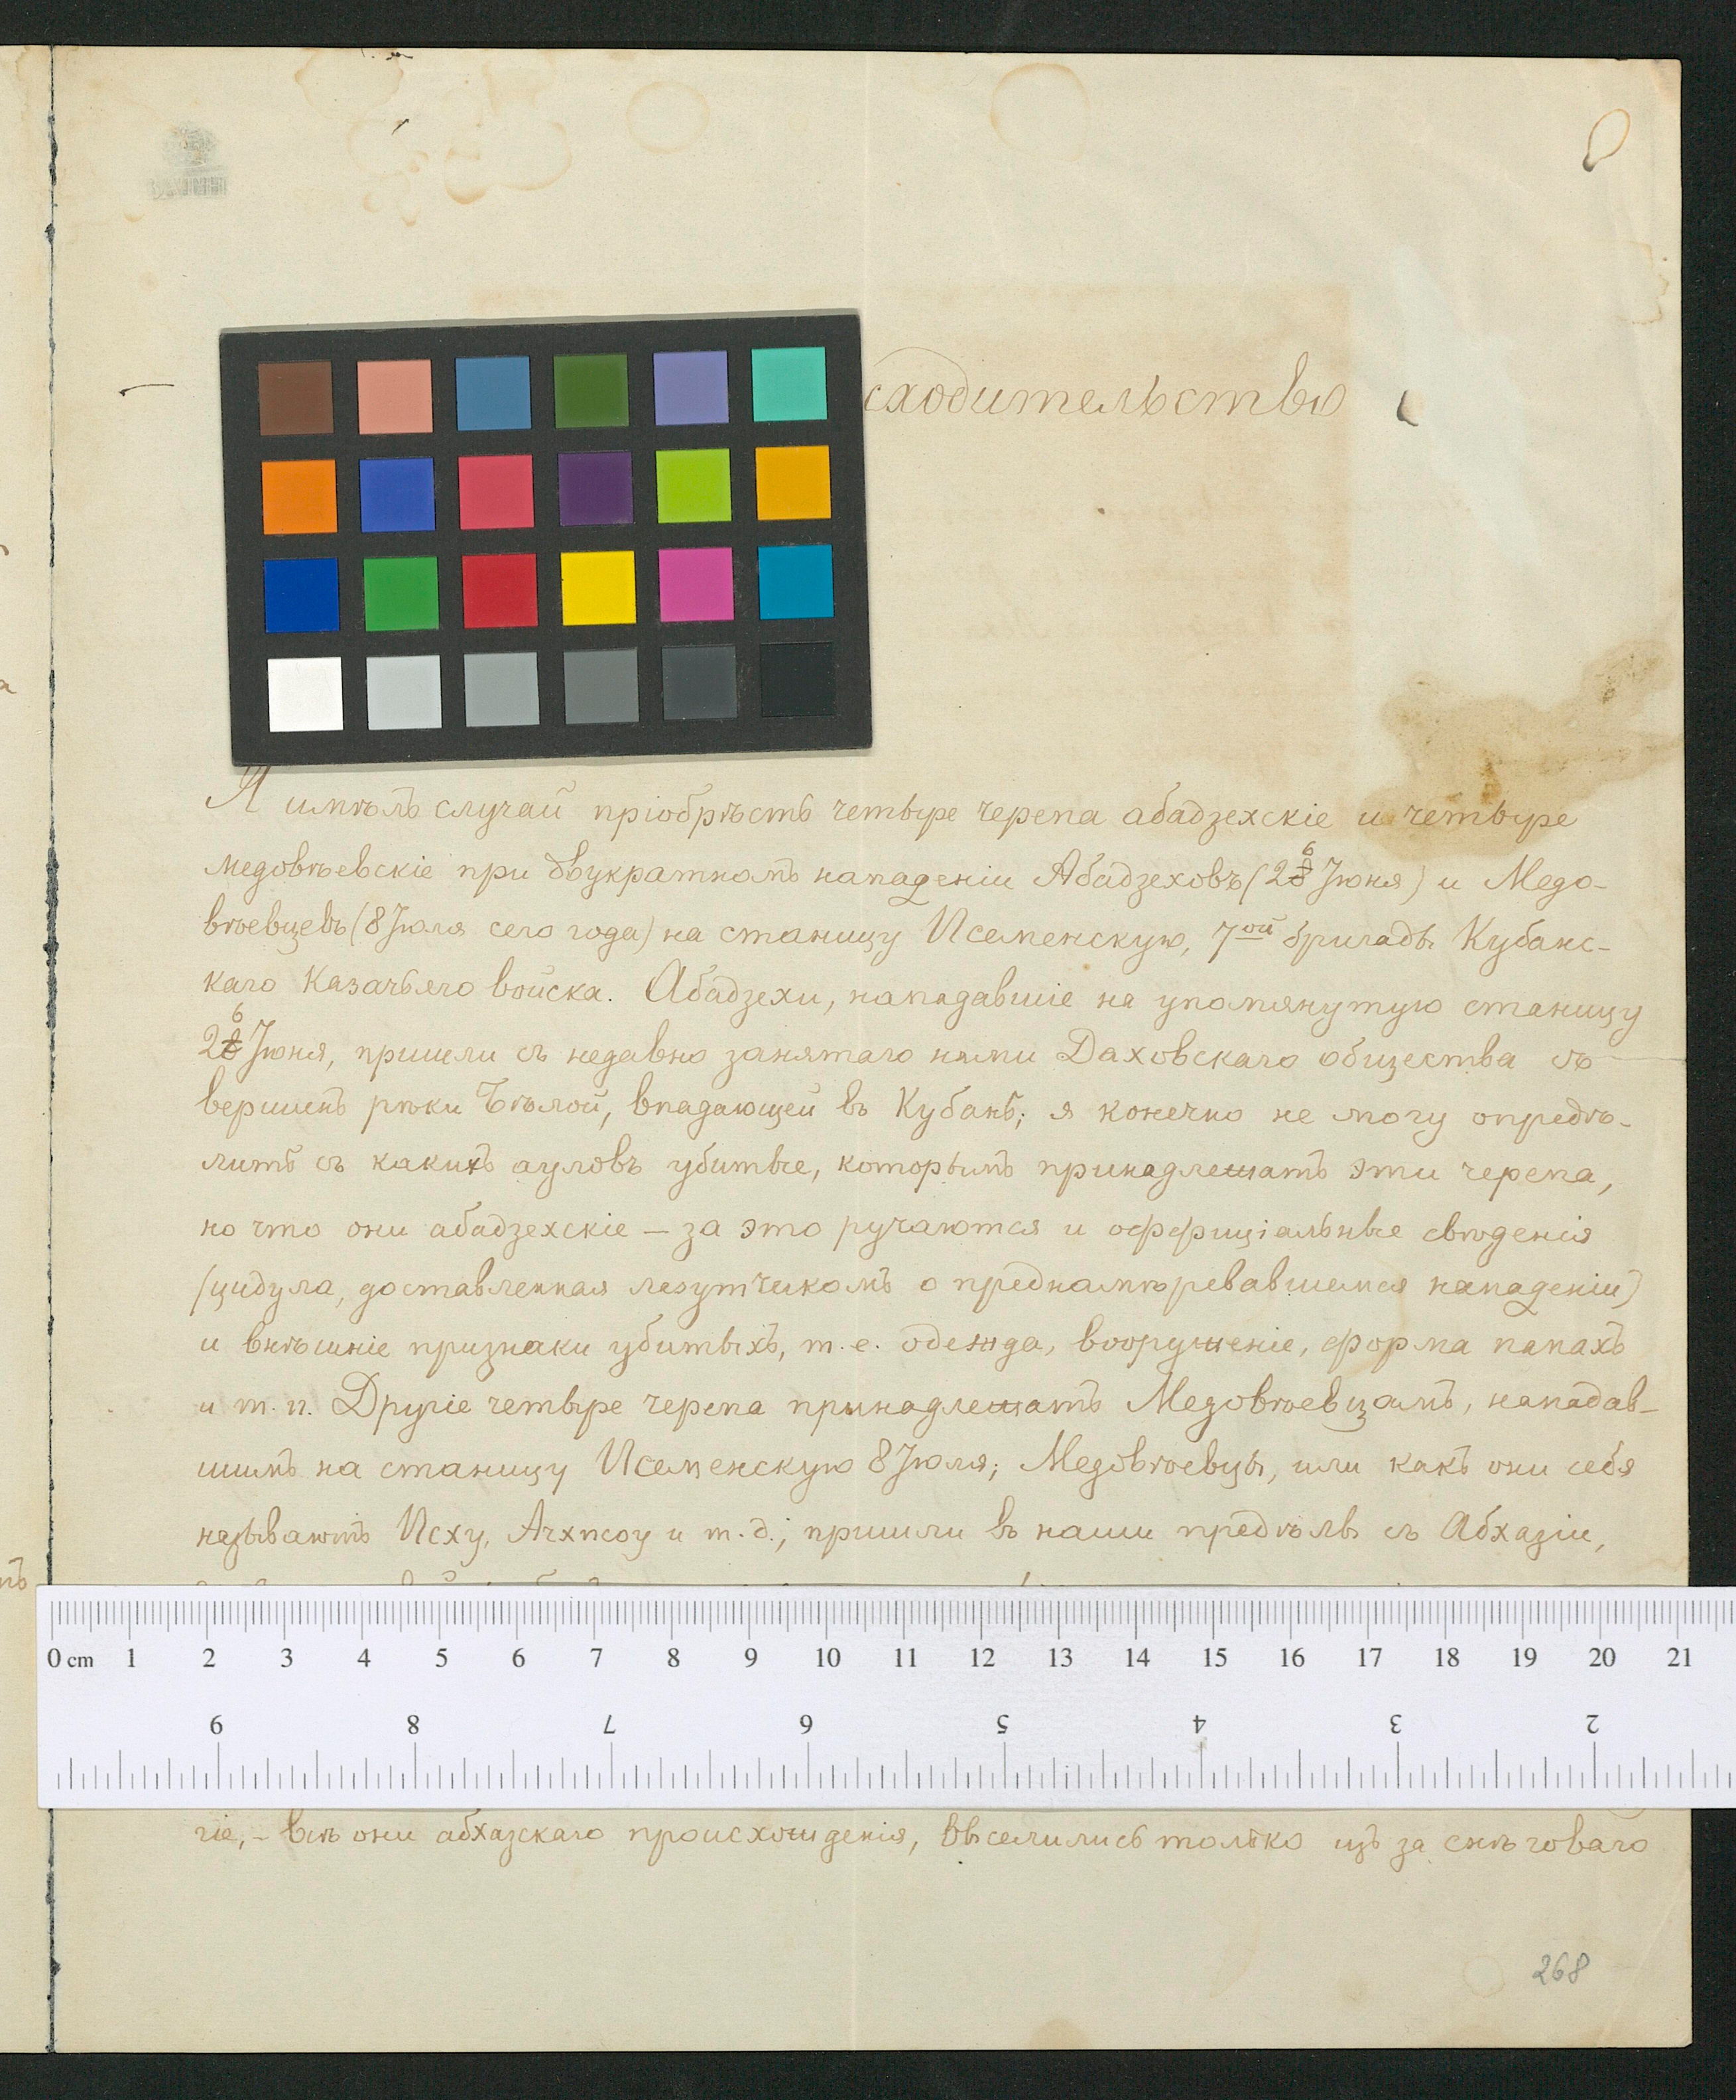 сходительство
Я имѣлъ случай пріобрѣсть четыре черепа абадзехскіе и четыре
медовѣевскіе при двукратномъ нападеніи Абадзеховъ (26 Іюня) и Медо-
вѣевцевъ (8 Іюля сего года) на станицу Псеменскую, 7ой бригады Кубанс-
каго Казачьяго войска. Абадзехи, нападавшіе на упомянутую станицу
26 Іюня, пришли съ недавно занятаго нами Даховскаго общества съ
вершинъ рѣки Бѣлой, впадающей въ Кубань; я конечно не могу опредѣ-
лить съ какихъ ауловъ убитые, которымъ принадлежатъ эти черепа,
но что они абадзехскіе — за это ручаются и оффиціальные свѣденія
(цидула, доставленная лазутчикомъ о преднамѣревавшемся нападеніи)
и внѣшніе признаки убитыхъ, т. е. одежда, вооруженіе, форма папахъ
и т. п. Другіе четыре черепа принадлежатъ Медовѣевцамъ, нападав-
шимъ на станицу Псеменскую 8 Іюля; Медовѣевцы, или какъ они себя
называютъ Псху, Ахчпсоу и т. д., пришли въ наши предѣлы съ Абхазіи,
0 cm 1 2 3 4 5 6 7 8 9 10 11 12 13 14 15 16 17 18 19 20 21
9 8 7 6 5 4 3 2
гіе, - всѣ они абхазскаго происхожденія, выселились только изъ за снѣговаго
268